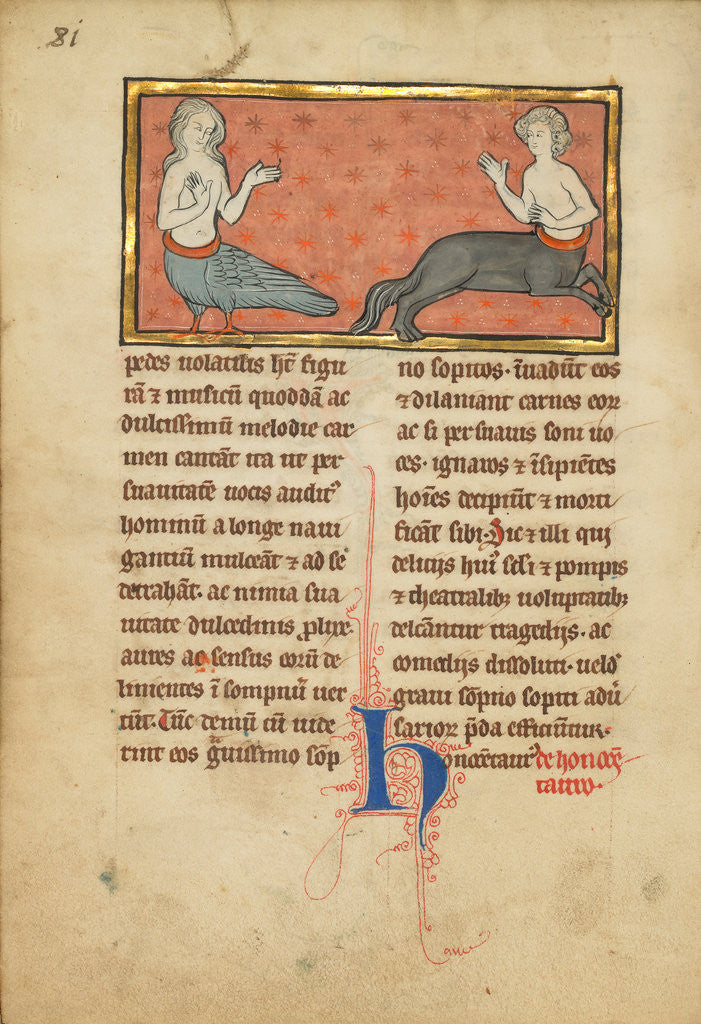 81
pedes uolatilis hn̄t figu
rā ⁊ musicū quoddā ac
dulcissimū melodie car
men cantāt ita ut per
suauitatē uocis audit᷒
hominū a longe naui
gantiū mulceāt ⁊ ad se
detrahāt. ac nimia sua
uitate dulcedinis ꝓlixe
aures ac sensus eorū de
linientes ī sompnū uer
tūt. Tūc demū cū uide
rint eos gͣuissimo sōp
no sopitos. īuadūt eos
⁊ dilaniant carnes eoꝝ
ac si persuauis soni uo
ces. ignaros ⁊ īsipiētes
hoīes decipiūt ⁊ morti
ficāt sibi. Sic ⁊ illi qui
delicijs hui᷒ scl̄i ⁊ pompis
⁊ theatralibꝫ uoluptatibꝫ
delectātur tragedijs. ac
comedijs dissoluti. uelᷤ
graui sōpno sopiti adū
sarioꝝ p̄da efficiūntur.
Honocētaur᷒ de honocē
tauro.